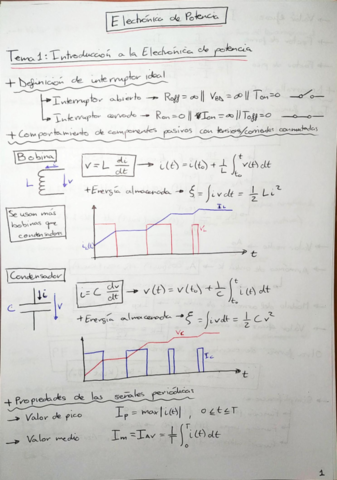 Electrónica de Potencia
Tema 1: Introducción a la Electrónica de potencia
+ Definición de interruptor ideal
↳ Interruptor abierto → Roff = ∞ || VBD = ∞ || Ton = 0
↳ Interruptor cerrado → Ron = 0 || Ion = ∞ || Toff = 0
+ Comportamiento de componentes pasivos con tensión/corriente conmutados
Bobina
L
v
v = L di/dt → i(t) = i(t₀) + 1/L ∫ₜ₀ᵗ v(t) dt
+ Energía almacenada → ξ = ∫ i v dt = 1/2 L i²
Se usan más bobinas que condensadores
t
Condensador
C
i
v
i = C dv/dt → v(t) = v(t₀) + 1/C ∫ₜ₀ᵗ i(t) dt
+ Energía almacenada → ξ = ∫ i v dt = 1/2 C v²
t
+ Propiedades de las señales periódicas
→ Valor de pico Ip = max |i(t)| , 0 ≤ t ≤ T
→ Valor medio Im = IAV = 1/T ∫₀ᵀ i(t) dt
1